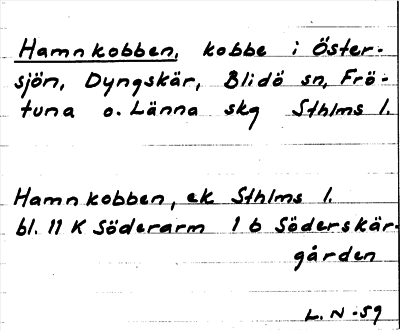 Hamnkobben, kobbe i Öster-
sjön, Dyngskär, Blidö sn, Frö-
tuna o. Länna skg Sthlms l.
Hamnkobben, ek Sthlms l.
bl. 11 K Söderarm 1 b Söderskär-
gården
L. N -59